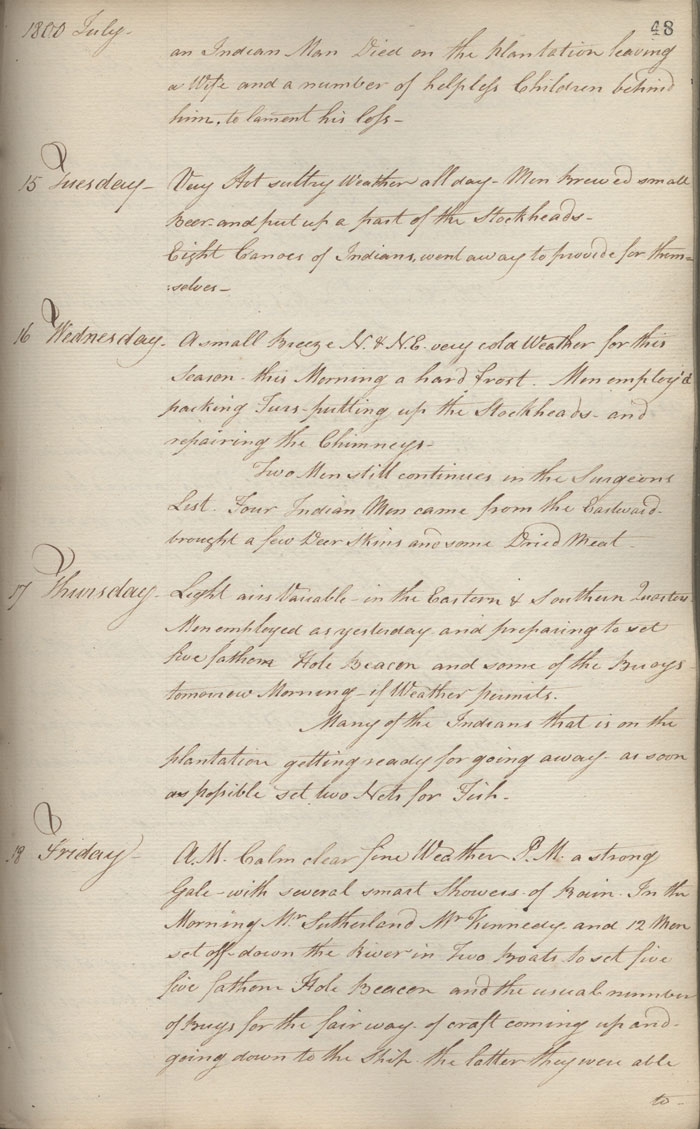 1800 July- 48
an Indian Man Died on the plantation leaving
a Wife and a number of helpless Children behind
him, to lament his loss-
15 Tuesday- Very Hot sultry Weather all day- Men brewed small
Beer and put up a part of the Stockheads-
Eight Canoes of Indians, went away to provide for them-
:selves-
16 Wednesday- A small Breeze N. & NE. very cold Weather for this
Season- this Morning a hard frost. Men employ'd
packing Furs- putting up the Stockheads- and
repairing the Chimneys-
Two Men still continues in the Surgeons
List. Four Indian Men came from the Eastward-
brought a few Deer Skins and some Dried Meat
17 Thursday- Light airs Variable- in the Eastern & Southern Quarters
Men employed as yesterday and preparing to set
five fathom Hole Beacon and some of the Buoys
tomorrow Morning- if Weather permits.
Many of the Indians that is on the
plantation getting ready for going away- as soon
as possible set two Nets for Fish-
18 Friday- A.M. Calm clear fine Weather P.M. a strong
Gale- with several smart Showers of Rain. In the
Morning Mr Sutherland Mr Kennedy and 12 Men
set off down the River in Two Boats to set five
five fathom Hole Beacon and the usual number
of Buys for the fair way- of craft coming up and-
going down to the Ship- the latter they were able
to-